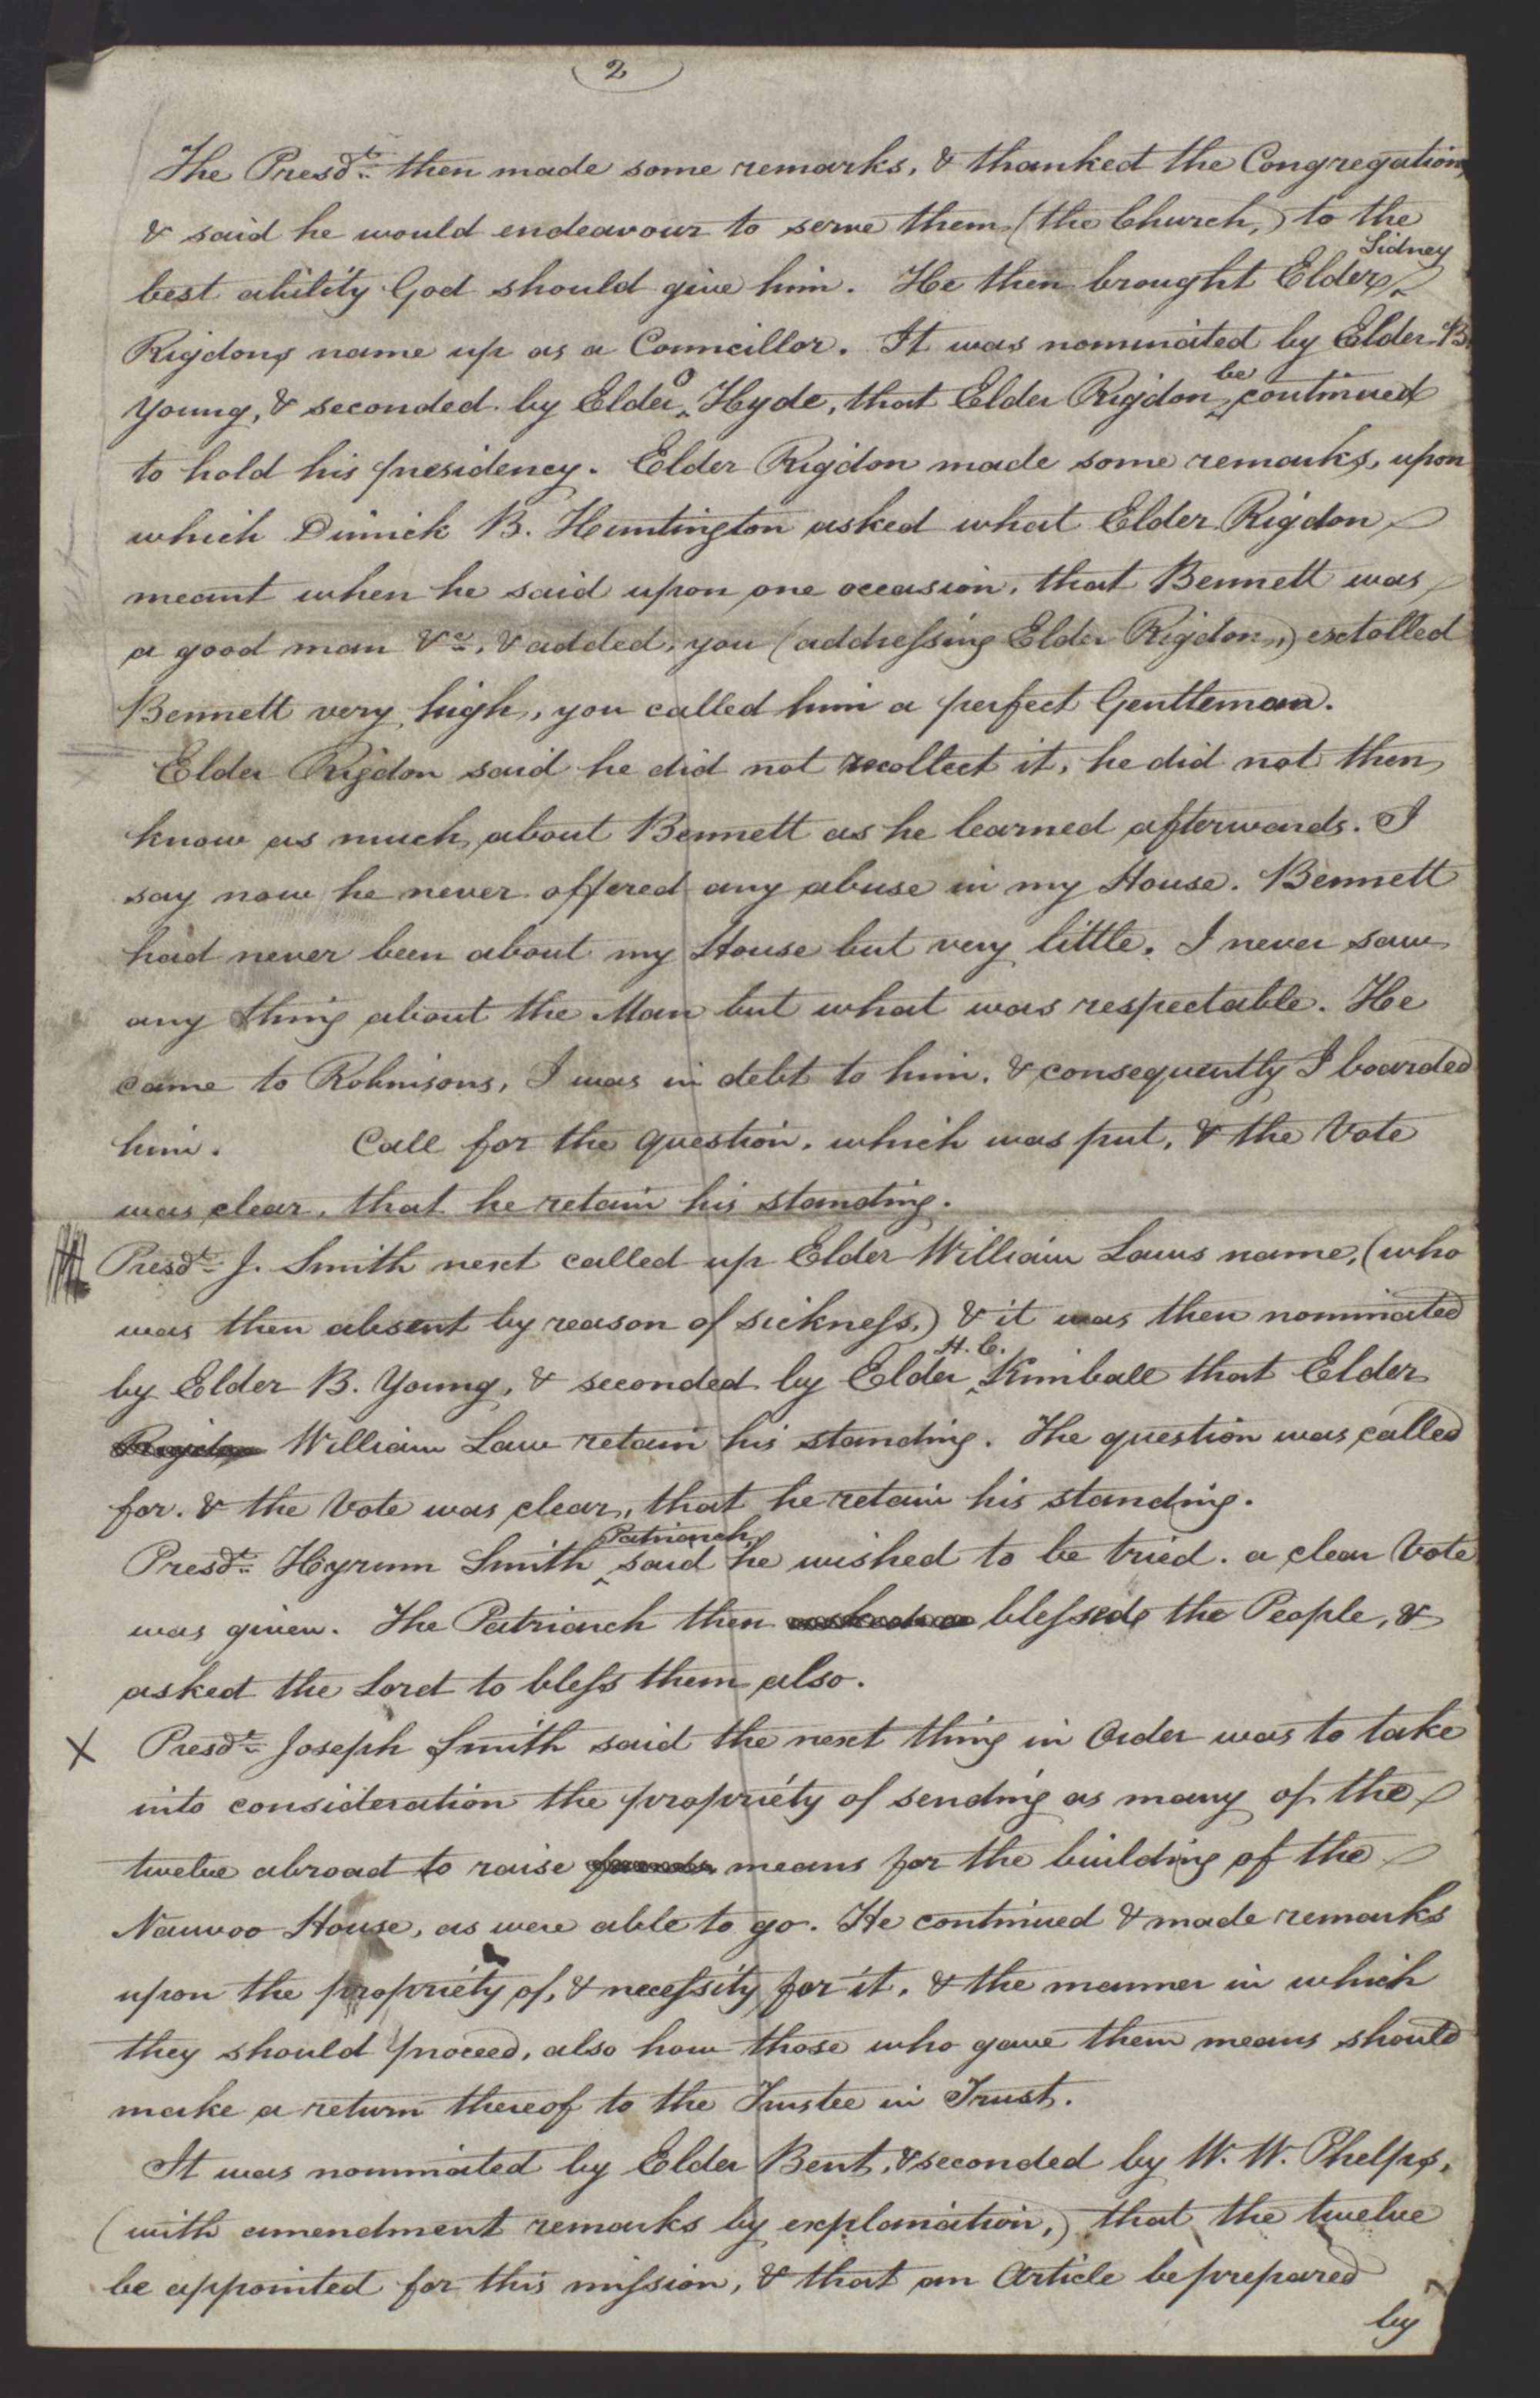 2
The Presdt. then made some remarks, & thanked the Congregation,
& said he would endeavour to serve them (the Church,) to the
best ability God should give him. He then brought Elder ^Sidney
Rigdons name up as a Councillor. It was nominated by Elder B.
Young, & seconded by Elder ^O Hyde, that Elder Rigdon ^be continued
to hold his presidency. Elder Rigdon made some remarks, upon
which Dimick B. Huntington asked what Elder Rigdon
meant when he said upon one occasion, that Bennett was
a good man &c., & added, you (addressing Elder Rigdon,) extolled
Bennett very high, you called him a perfect Gentleman.
Elder Rigdon said he did not recollect it, he did not then
know as much about Bennett as he learned afterwards. I
say now he never offered any abuse in my House. Bennett
had never been about my House but very little. I never saw
any thing about the Man but what was respectable. He
came to Robinsons, I was in debt to him, & consequently I boarded
him. Call for the question, which was put, & the Vote
was clear, that he retain his standing.
Presdt. J. Smith next called up Elder William Laws name, (who
was then absent by reason of sickness,) & it was then nominated
by Elder B. Young, & seconded by Elder ^H. C. Kimball that Elder
Rigdon William Law retain his standing. The question was called
for. & the Vote was clear, that he retain his standing.
Presdt. Hyrum Smith ^Patriarch, said he wished to be tried. a clear Vote
was given. The Patriarch then blessed the People, &
asked the Lord to bless them also.
X Presdt. Joseph Smith said the next thing in Order was to take
into consideration the propriety of sending as many of the
twelve abroad to raise means for the building of the
Nauvoo House, as were able to go. He continued & made remarks
upon the propriety of, & necessity for it, & the manner in which
they should proceed, also how those who gave them means should
make a return thereof to the Trustee in Trust.
It was nominated by Elder Bent, & seconded by W. W. Phelps,
(with amendment remarks by explanation,) that the twelve
be appointed for this mission, & that an Article be prepared
by